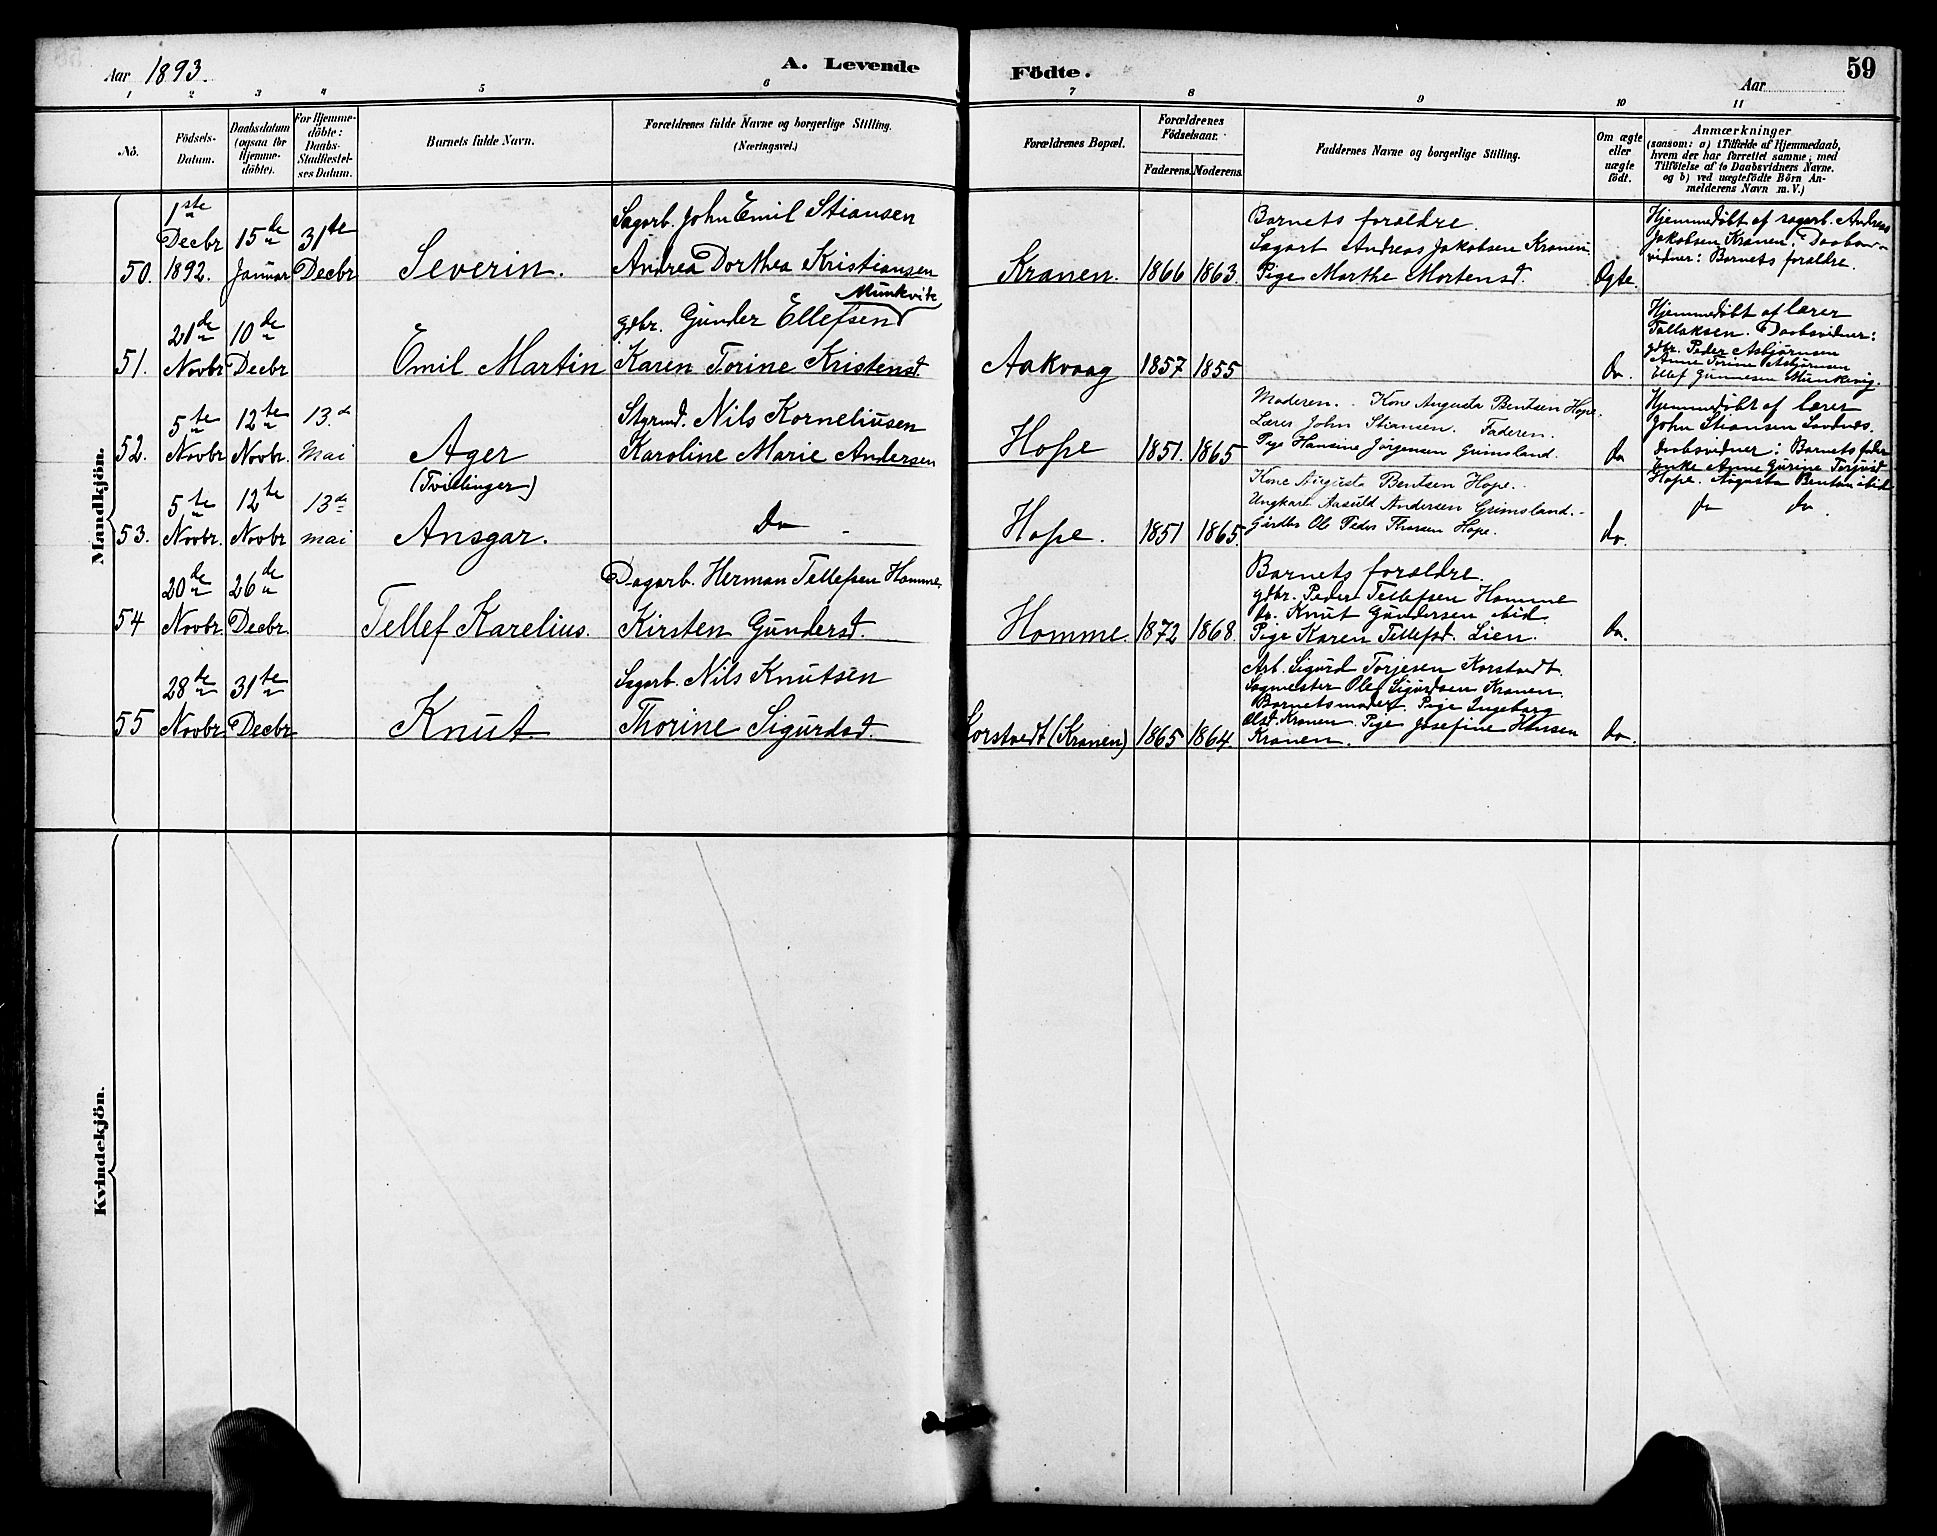 Aar 1893.
A. Levende Fødte.
Aar
59
1 2 3 4 5 6 7 8 9 10 11
No.
Födsels-
Datum.
Daabsdatum
(ogsaa for
Hjemme-
döbte).
For Hjemme-
döbte:
Daabs-
Stadfæstel-
ses Datum.
Barnets fulde Navn.
Forældrenes fulde Navne og borgerlige Stilling.
(Næringsvei.)
Forældrenes Bopæl.
Forældrenes
Födselsaar.
Faderens. Moderens.
Faddernes Navne og borgerlige Stilling.
Om ægte
eller
uægte
født.
Anmærkninger
(saasom: a) i Tilfælde af Hjemmedaab,
hvem der har forrettet samme, med
Tilföielse af to Daabsvidners Navne.
og b) ved uægtefødte Börn An-
melderens Navn m. V.)
Mandkjön.
50.
1ste
Decbr
1892.
15de
Januar
31te
Decbr
Severin.
Sagarb. John Emil Stiansen
Andrea Dorthea Kristiansen
Kranen.
1866 1863.
Barnets forældre.
Sagarb Andreas Jakobsen Kranen.
Pige Marthe Mortensd.
Ægte.
Hjemmedøbt af sagarb. Andreas
Jakobsen Kranen. Daabs-
vidner: Barnets forældre.
51.
21de
Novbr
10de
Decbr
Emil Martin
Munkvik
gdbr. Gunder Ellefsen
Karen Torine Kristensd.
Aakvaag
1857 1855
Do.
Hjemmedøbt af lærer
Tallaksen. Daabsvidner:
gdbr. Peder Asbjørnsen
Anne Torine Asbjørnsen
Ellef Gunnesen Munkvig.
52.
5te
Novbr
12te
Novbr.
13.d
Mai
Ager
(Tvillinger)
Styrmd. Nils Korneliusen
Karoline Marie Andersen
Hope
1851. 1865
Moderen. Kone Augusta Bentsen Hope.
Lærer John Stiansen. Faderen.
Pige Hansine Jørgensen Grimsland.
do
Hjemmedøbt af lærer
John Stiansen
Daabsvidner: Barnets fader
Enke Anne Gurine Terjusd
Hope. Augusta Bentsen ibid
53.
5te
Novbr.
12te
Novbr
13de
mai
Ansgar.
Do
Hope.
1851 1865.
Kone Augusta Bentsen Hope.
Ungkarl Andersen Grimsland.
Gårdbr Ole Peder Thorsen Hope.
do.
do do.
54
20de
Novbr
26de
Decbr.
Tellef Karelius.
Dagarb. Herman Tellefsen Homme.
Kirsten Gundersd.
Homme.
1872 1868.
Barnets forældre.
gdbr. Peder Tellefsen Homme
do. Knut Gundersen ibid
Pige Karen Tellefsd. Lien.
do.
55
28de
Novbr
31te
Decbr
Knut
Sagarb. Nils Knutsen
Thorine Sigurdsd.
Korstvedt (Kranen)
1865 1864.
Arb. Sigurd Torjesen Korstvedt.
Sagmester Ole Sigurdsen Kranen.
Barnets moder. Pige Ingeborg
Olsd. Kranen. Pige Josefine Hansen
Kranen.
do.
Kvindekjön.